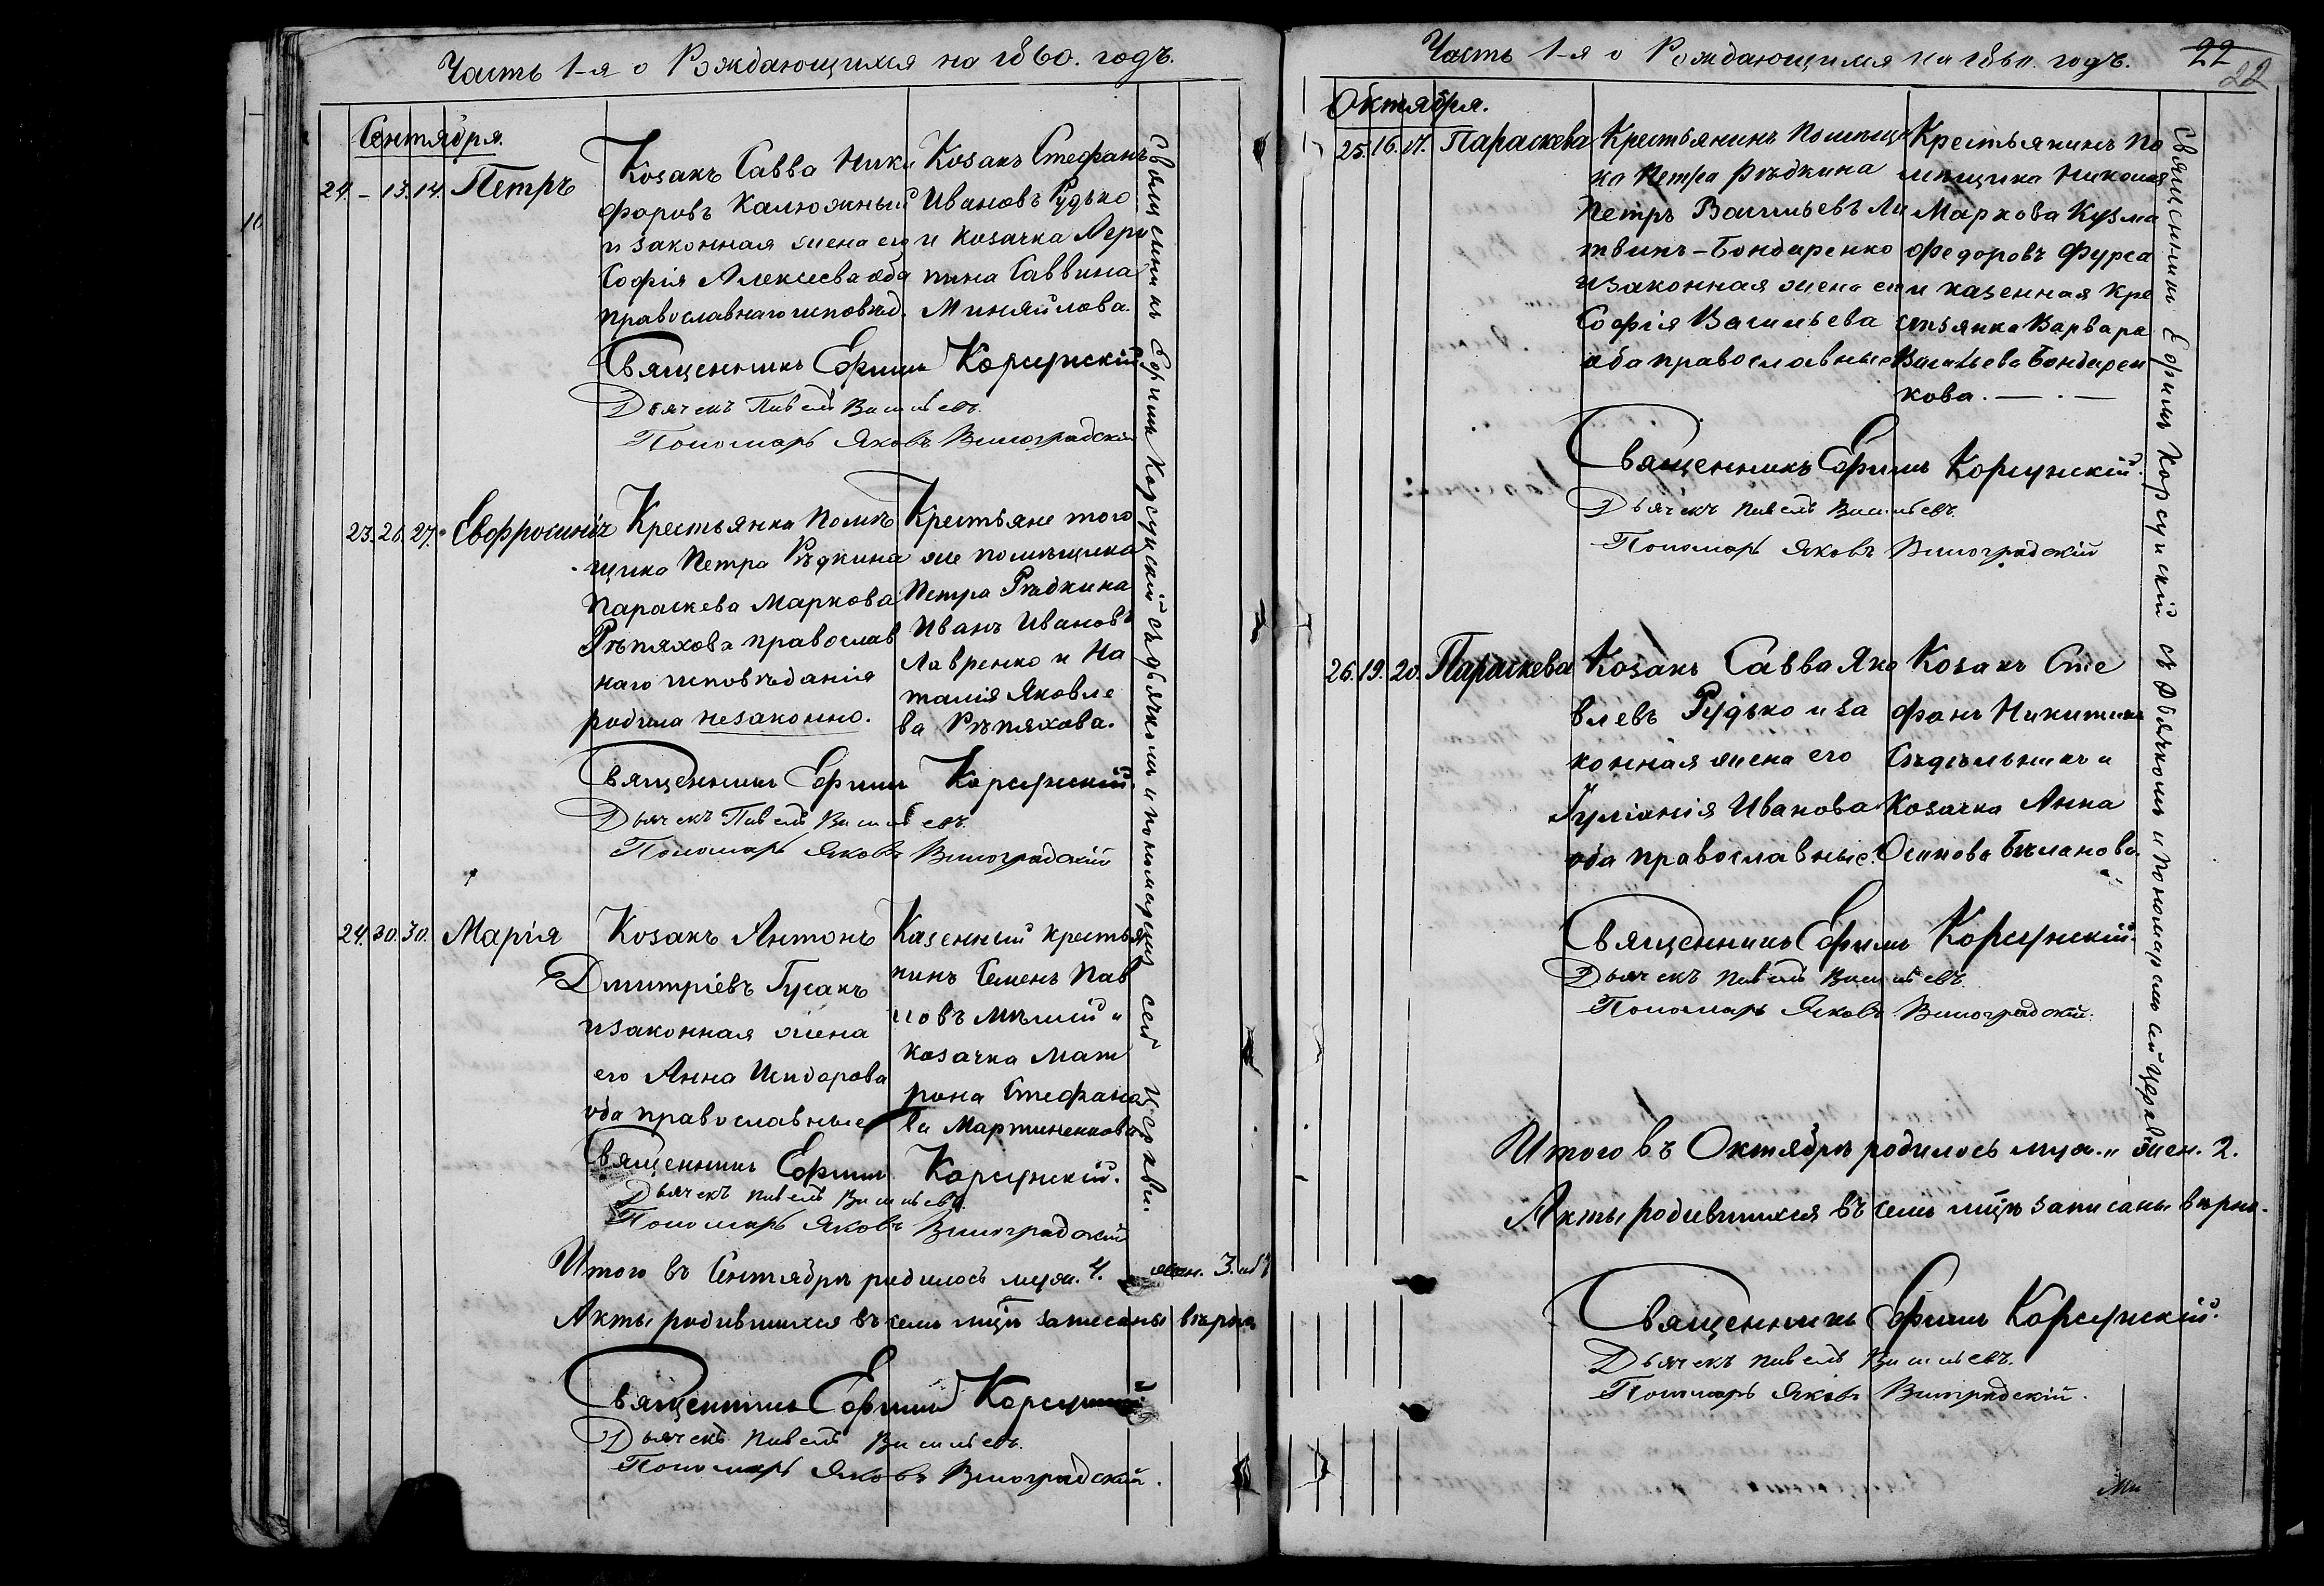 Часть 1-я о Рождающихся на 1860. годъ.
Сентября.
24. – 13. 14. Петръ
Козакъ Савва Ники
форовъ Калюжный
и законная жена его
Софія Алексеева оба
православнаго исповѣд.
Козакъ Стефанъ
Ивановъ Рудько
и козачка Агри
пина Саввина
Миняйлова.
Священникъ Ефимъ Корсунскій
Дьячекъ Павелъ Васильевъ.
Пономарь Яковъ Виноградскій
23. 26. 27. Евфросинія
Крестьянка помѣ
щика Петра Рѣдкина
Параскева Маркова
Рѣпяхова православ
наго исповѣданія
родила незаконно.
Крестьяне того
же помѣщика
Петра Рѣдкина
Иванъ Ивановъ
Лавренко и На
талія Яковле
ва Рѣпяхова.
Священникъ Ефимъ Корсунскій
Дьячекъ Павелъ Васильевъ.
Пономарь Яковъ Виноградскій
24. 30. 30. Марія
Козакъ Антонъ
Дмитріевъ Гусакъ
и законная жена
его Анна Исидорова
оба православные
Казенный крестья
нинъ Семенъ Пав
ловъ и
козачка Мат
рона Стефано
ва Мартиненкова
Священникъ Ефимъ Корсунскій.
Дьячекъ Павелъ Васильевъ.
Пономарь Яковъ Виноградскій
Итого въ Сентябрѣ родилось муж. 4. жен. 3.
Акты родившихся въ семъ мцѣ записаны вѣрно
Священникъ Ефимъ Корсунскій
Дьячекъ Павелъ Васильевъ.
Пономарь Яковъ Виноградскій.
Священникъ Ефимъ Корсунскій съ дьячкомъ и пономаремъ сей церкви.
Часть 1-я о Рождающимся на 1860. годъ.
22
22
Октября.
25. 16. 17. Параскева
Крестьянинъ помѣщи
ка Петра Рѣдкина
Петръ Васильевъ Ли
твинъ-Бондаренко
и законная жена его
Софія Васильева
оба православные
Крестьянинъ по
мѣщика Николая
Маркова Кузма
Федоровъ Фурса
и казенная кре
стьянка Варвара
Васильева Бондарен
кова.
Священникъ Ефимъ Корсунскій.
Дьячекъ Павелъ Васильевъ.
Пономарь Яковъ Виноградскій
26. 19. 20. Параскева
Козакъ Савва Яко
влевъ Рудько и за
конная жена его
Іуліанія Иванова
оба православные.
Козакъ Сте
фанъ Никитинъ
Сѣдѣльникъ и
Козачка Анна
Осипова Бѣланова
Священникъ Ефимъ Корсунскій.
Дьячекъ Павелъ Васильевъ.
Пономарь Яковъ Виноградскій.
Итого въ Октябрѣ родилось муж. „ жен. 2.
Акты родившихся въ семъ мцѣ записаны вѣрно.
Священникъ Ефимъ Корсунскій.
Дьячекъ Павелъ Васильевъ.
Пономарь Яковъ Виноградскій.
Священникъ Ефимъ Корсунскій съ дьячкомъ и пономаремъ сей церкви